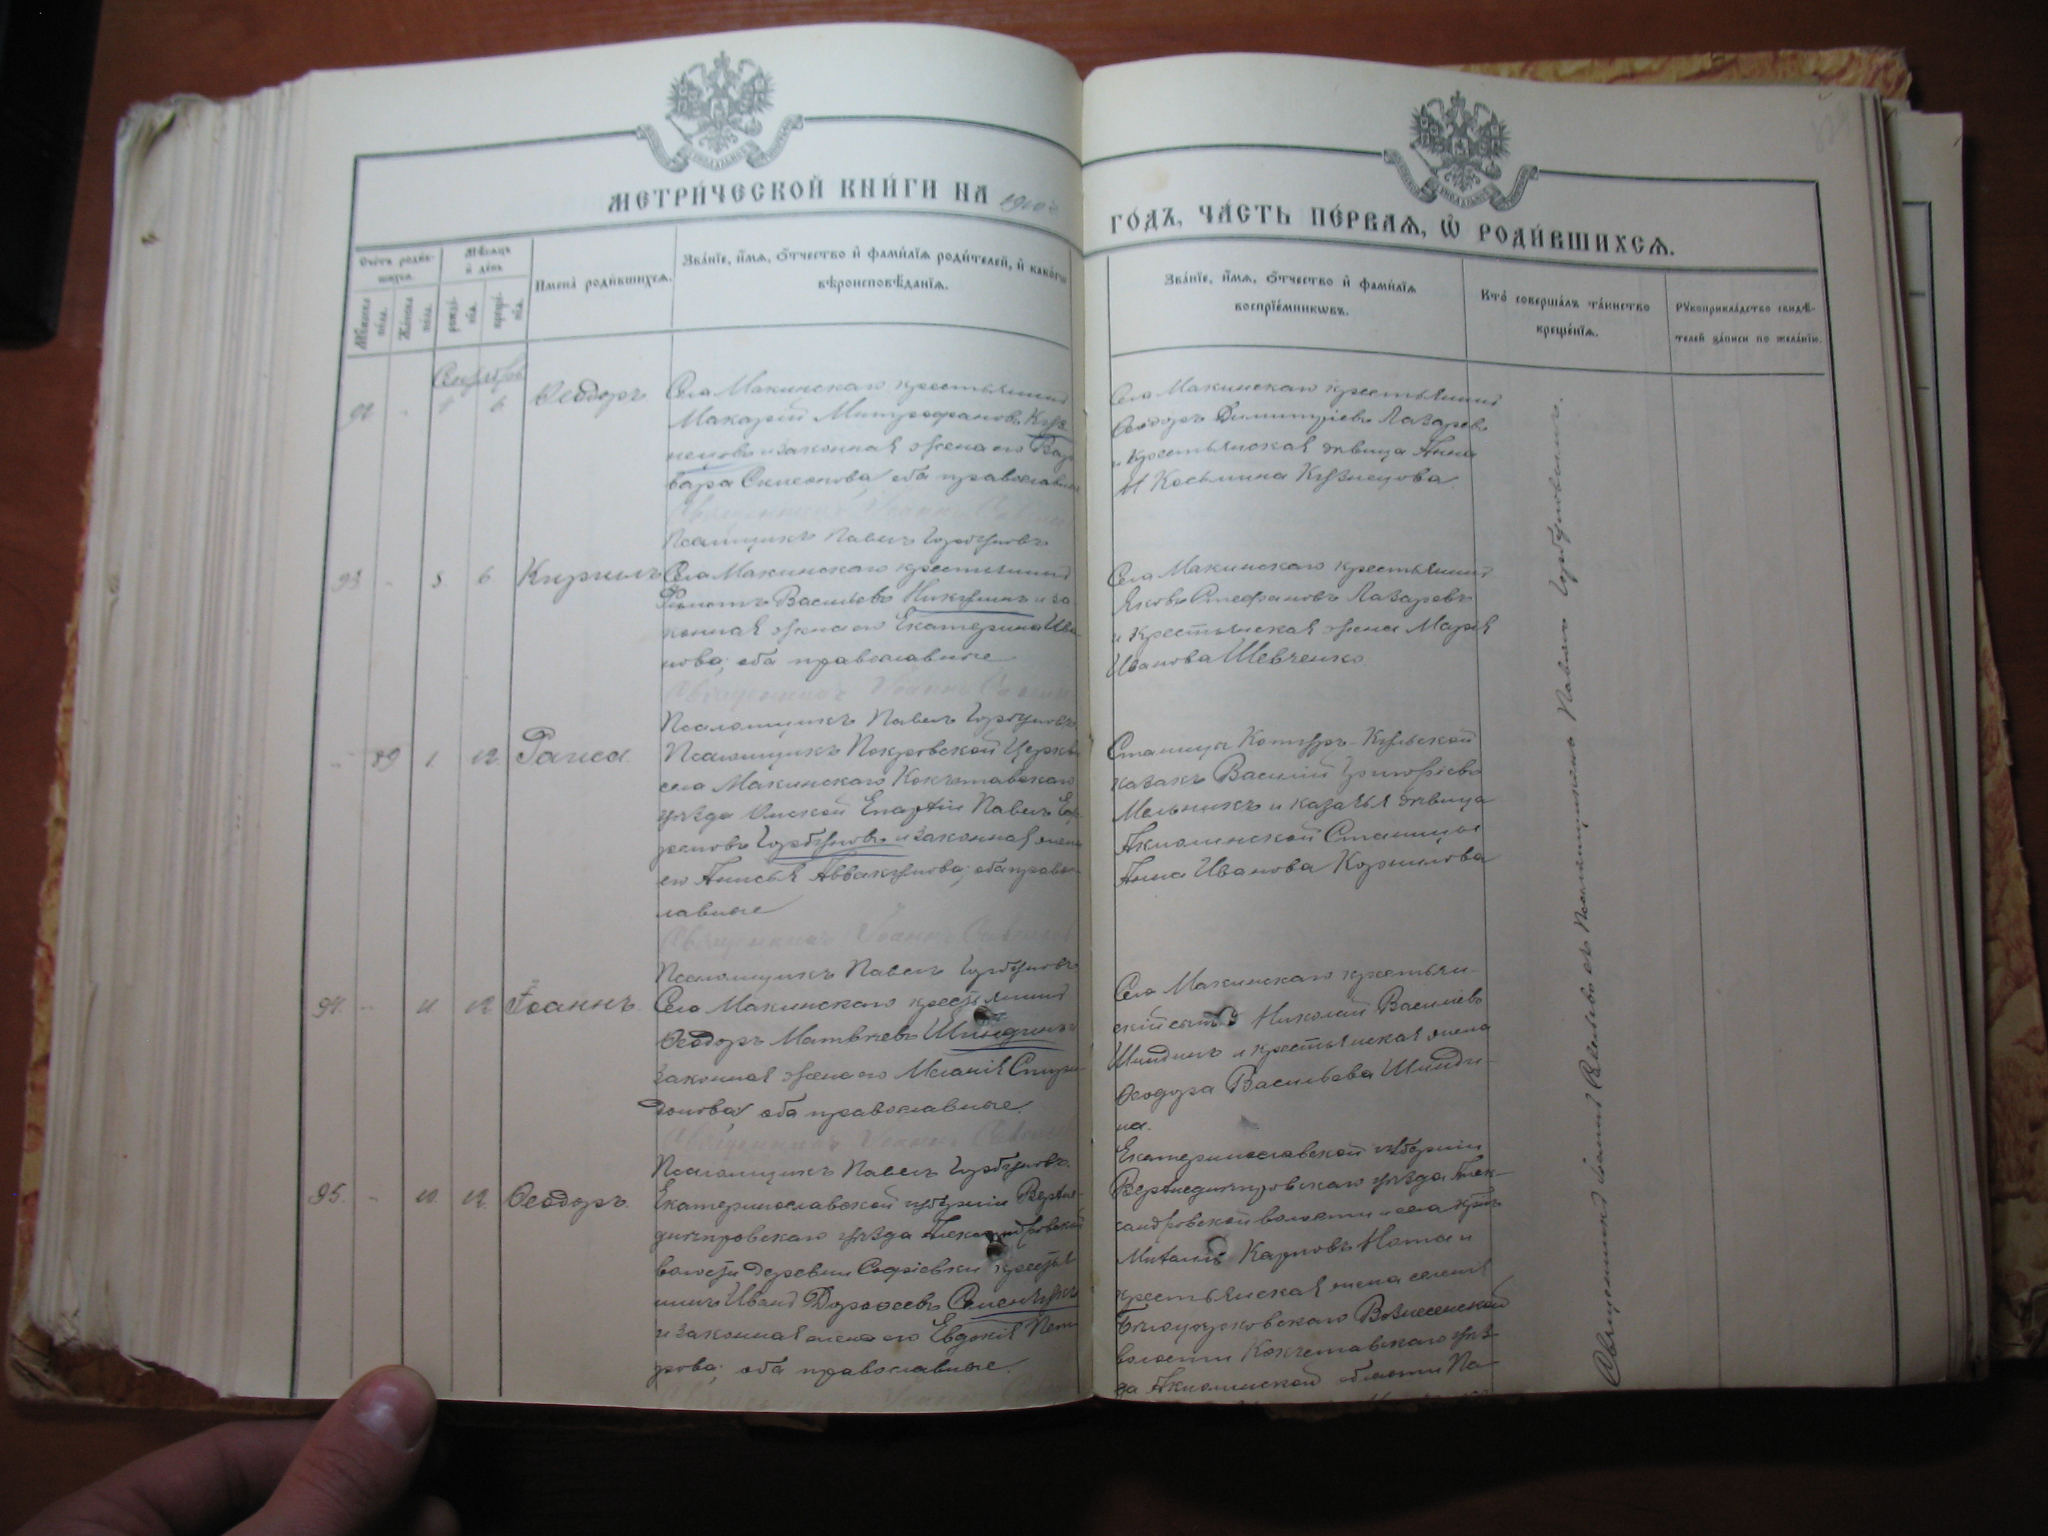 МЕТРИ́ЧЕСКОЙ КНИ́ГИ НА 1910 г
ГО́ДЪ, ЧА́СТЬ ПЕ́РВАѦ, Ѡ҆ РОДИ́ВШИХСѦ.
Сче́тъ роди́в-
шихсѧ.
Мѣ́сѧцъ
и҆ де́нь
Мꙋ́жска
по́ла.
Же́нска
по́ла.
рожде́-
нїѧ.
креще́-
нїѧ.
И҆мена̀ роди́вшихсѧ.
Зва́нїе, и҆́мѧ, ѻ҆́тчество и҆ фами́лїѧ роди́телей, и҆ како́гѡ
вѣроисповѣ́данїѧ.
Зва́нїе, и҆́мѧ, ѻ҆́тчество и҆ фами́лїѧ
воспрїе́мникѡвъ.
Кто̀ соверша́лъ та́инство
креще́нїѧ.
Рꙋкоприкла́дство свидѣ́-
телей за́писи по жела́нїю.
Сентябрь
92 - Ѳеодоръ
Села Макинскаго крестьянинъ
Макарій Митрофановъ Куз-
нецовъ и законная жена его Вар-
вара Симеонова, оба православные
Священникъ Іоаннъ
Псаломщикъ Павелъ Горбуновъ
Села Макинскаго крестьянинъ
Ѳеодоръ Димитріевъ Лазаревъ
и крестьянская дѣвица Анна
Косьмина Кузнецова.
93 - 5 6 Кириллъ
Села Макинскаго крестьянинъ
Васильевъ Никулинъ и за-
конная жена его Екатерина Ива-
нова; оба православные
Священникъ Іоаннъ
Псаломщикъ Павелъ Горбуновъ
Села Макинскаго крестьянинъ
Яковъ Стефановъ Лазаревъ
и крестьянская жена Марія
Иванова Шевченко.
- 89 1. 12. Раиса.
Псаломщикъ Покровской Церкви
села Макинскаго Кокчетавскаго
уѣзда Омской Епархіи Павелъ Еф-
ремовъ Горбуновъ и законная жена
его Анисья Аввакумова; оба право-
славные
Священникъ Іоаннъ
Псаломщикъ Павелъ Горбуновъ
Станицы Котуръ-Кульской
казакъ Василій Григорьевъ
Мельникъ и казачья дѣвица
Акмолинской Станицы
Анна Иванова Корнилова
94. - 11 12 Іоаннъ.
Села Макинскаго крестьянинъ
Ѳеодоръ Матвѣевъ Шиндинъ и
законная жена его Меланія Спири-
донова, оба православные.
Священникъ Іоаннъ
Псаломщикъ Павелъ Горбуновъ.
Села Макинскаго крестьян-
скій сынъ Николай Васильевъ
Шиндинъ и крестьянская жена
Ѳеодора Васильева Шинди-
на.
95. - 12. 12. Ѳеодоръ.
Екатеринославской губерніи Верхне-
днѣпровскаго уѣзда Александровской
волости деревни Софіевки крестья-
нинъ Иванъ Дороѳеевъ Семенчукъ
и законная жена его Евдокія Пет-
рова; оба православные.
Екатеринославской губерніи
Верхнеднѣпровскаго уѣзда Алек-
сандровской волости и села кр-нъ
Михаилъ Карповъ Нота и
крестьянская жена селенія
Вознесенской
волости Кокчетавскаго уѣз-
да Акмолинской области Па-
Священникъ Іоаннъ съ Псаломщикомъ Павломъ Горбуновымъ.